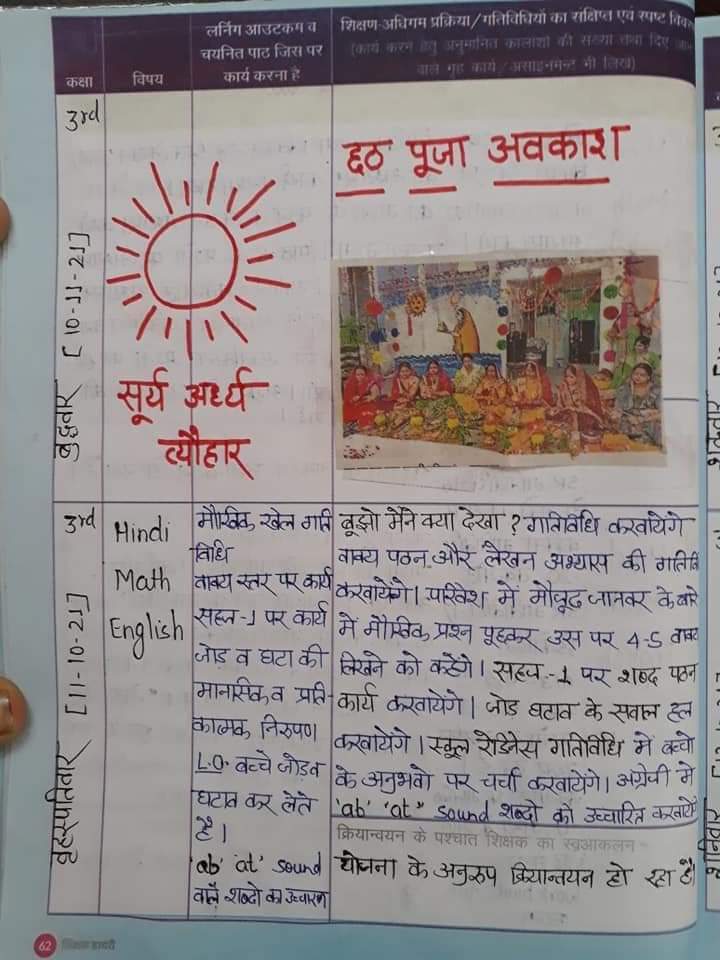 कक्षा
विषय
लर्निंग आउटकम व
चयनित पाठ जिस पर
कार्य करना है
शिक्षण-अधिगम प्रक्रिया/गतिविधियों का संक्षिप्त एवं स्पष्ट
(कार्य करने हेतु अनुमानित कालांशों की संख्या तथा दिए
वाले गृह कार्य/असाइनमेन्ट भी लिखें)
3rd
बुद्धवार [10-11-21]
सूर्य अर्ध्य
त्यौहार
छठ पूजा अवकाश
3rd
बृहस्पतिवार [11-10-21]
Hindi
Math
English
मौखिक खेल गति
विधि
वाक्य स्तर पर कार्य
सहज-1 पर कार्य
जोड़ व घटा की
मानसिक व प्रति-
कात्मक निरुपण
L.O. बच्चे जोड़ व
घटाव कर लेते
है।
'ab' 'at' sound
वाले शब्दो का उच्चारण
बूझो मैने क्या देखा ? गतिविधि करवायेंगे
वाक्य पठन और लेखन अभ्यास की गतिवि
करवायेंगे। परिवेश में मौजूद जानवर के बारे
में मौखिक प्रश्न पूछकर उस पर 4-5 वाक्य
लिखने को कहेंगे। सहज-1 पर शब्द पठन
कार्य करवायेंगे। जोड घटाव के सवाल हल
करवायेंगे। स्कूल रेडिनेस गतिविधि में बच्चो
के अनुभवो पर चर्चा करवायेंगे। अंग्रेजी में
'ab' 'at" sound शब्दो को उच्चारित करवायेंगे
क्रियान्वयन के पश्चात शिक्षक का स्वआकलन
योजना के अनुरुप क्रियान्वयन हो रहा है।
62 शिक्षक डायरी